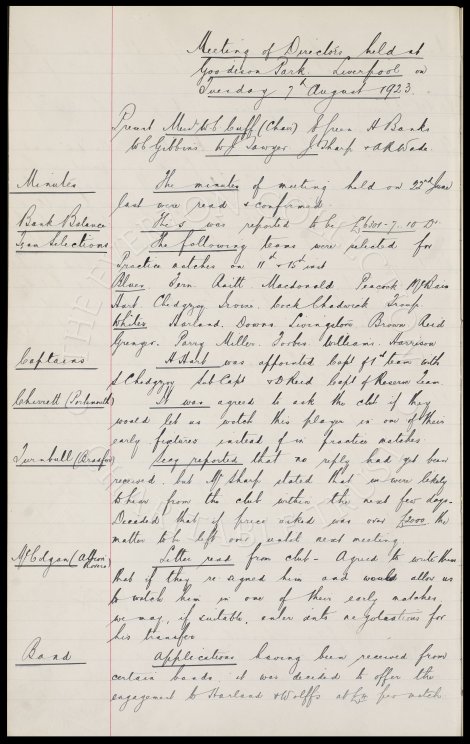 Meeting of Directors held at
Goodison Park Liverpool on
Tuesday 7th August 1923
Present Messrs W C Cuff (Chair) E Green H Banks
W C Gibbins W J Sawyer J Sharp & A R Wade
Minutes
The minutes of meeting held on 22nd June
last were read & confirmed.
Bank Balance
This was reported to be £6301-7-10 Dr
Team Selections
The following teams were selected for
Practice matches on 11th & 15th inst
Blues. Fern Raitt Macdonald Peacock McBain
Hart Chedgzoy Irvine Cock Chadwick Troup
Whites. Harland Downs Livingstone Brown Reid
Grenyer Parry Miller Forbes Williams Harrison
Captains
H Hart was appointed Capt of 1st team with
S Chedgzoy Sub Capt & D Reid Capt of Reserve Team.
Cherrett (Portsmouth)
It was agreed to ask the club if they
would let us watch this player in one of their
early fixtures instead of in practice matches
Turnbull (Bradford)
Secy reported that no reply had yet been
received, but Mr Sharp stated that we were likely
to hear from the club within the next few days.
Decided that if price asked was over £2000 the
matter to be left over until next meeting.
McColgan (Albion Rovers)
Letter read from club - Agreed to write them
that if they re-signed him and would allow us
to watch him in one of their early matches
we may, if suitable, enter into negotiations for
his transfer
Band
Applications having been received from
certain bands, it was decided to offer the
engagement to Harland & Wolffs at per match